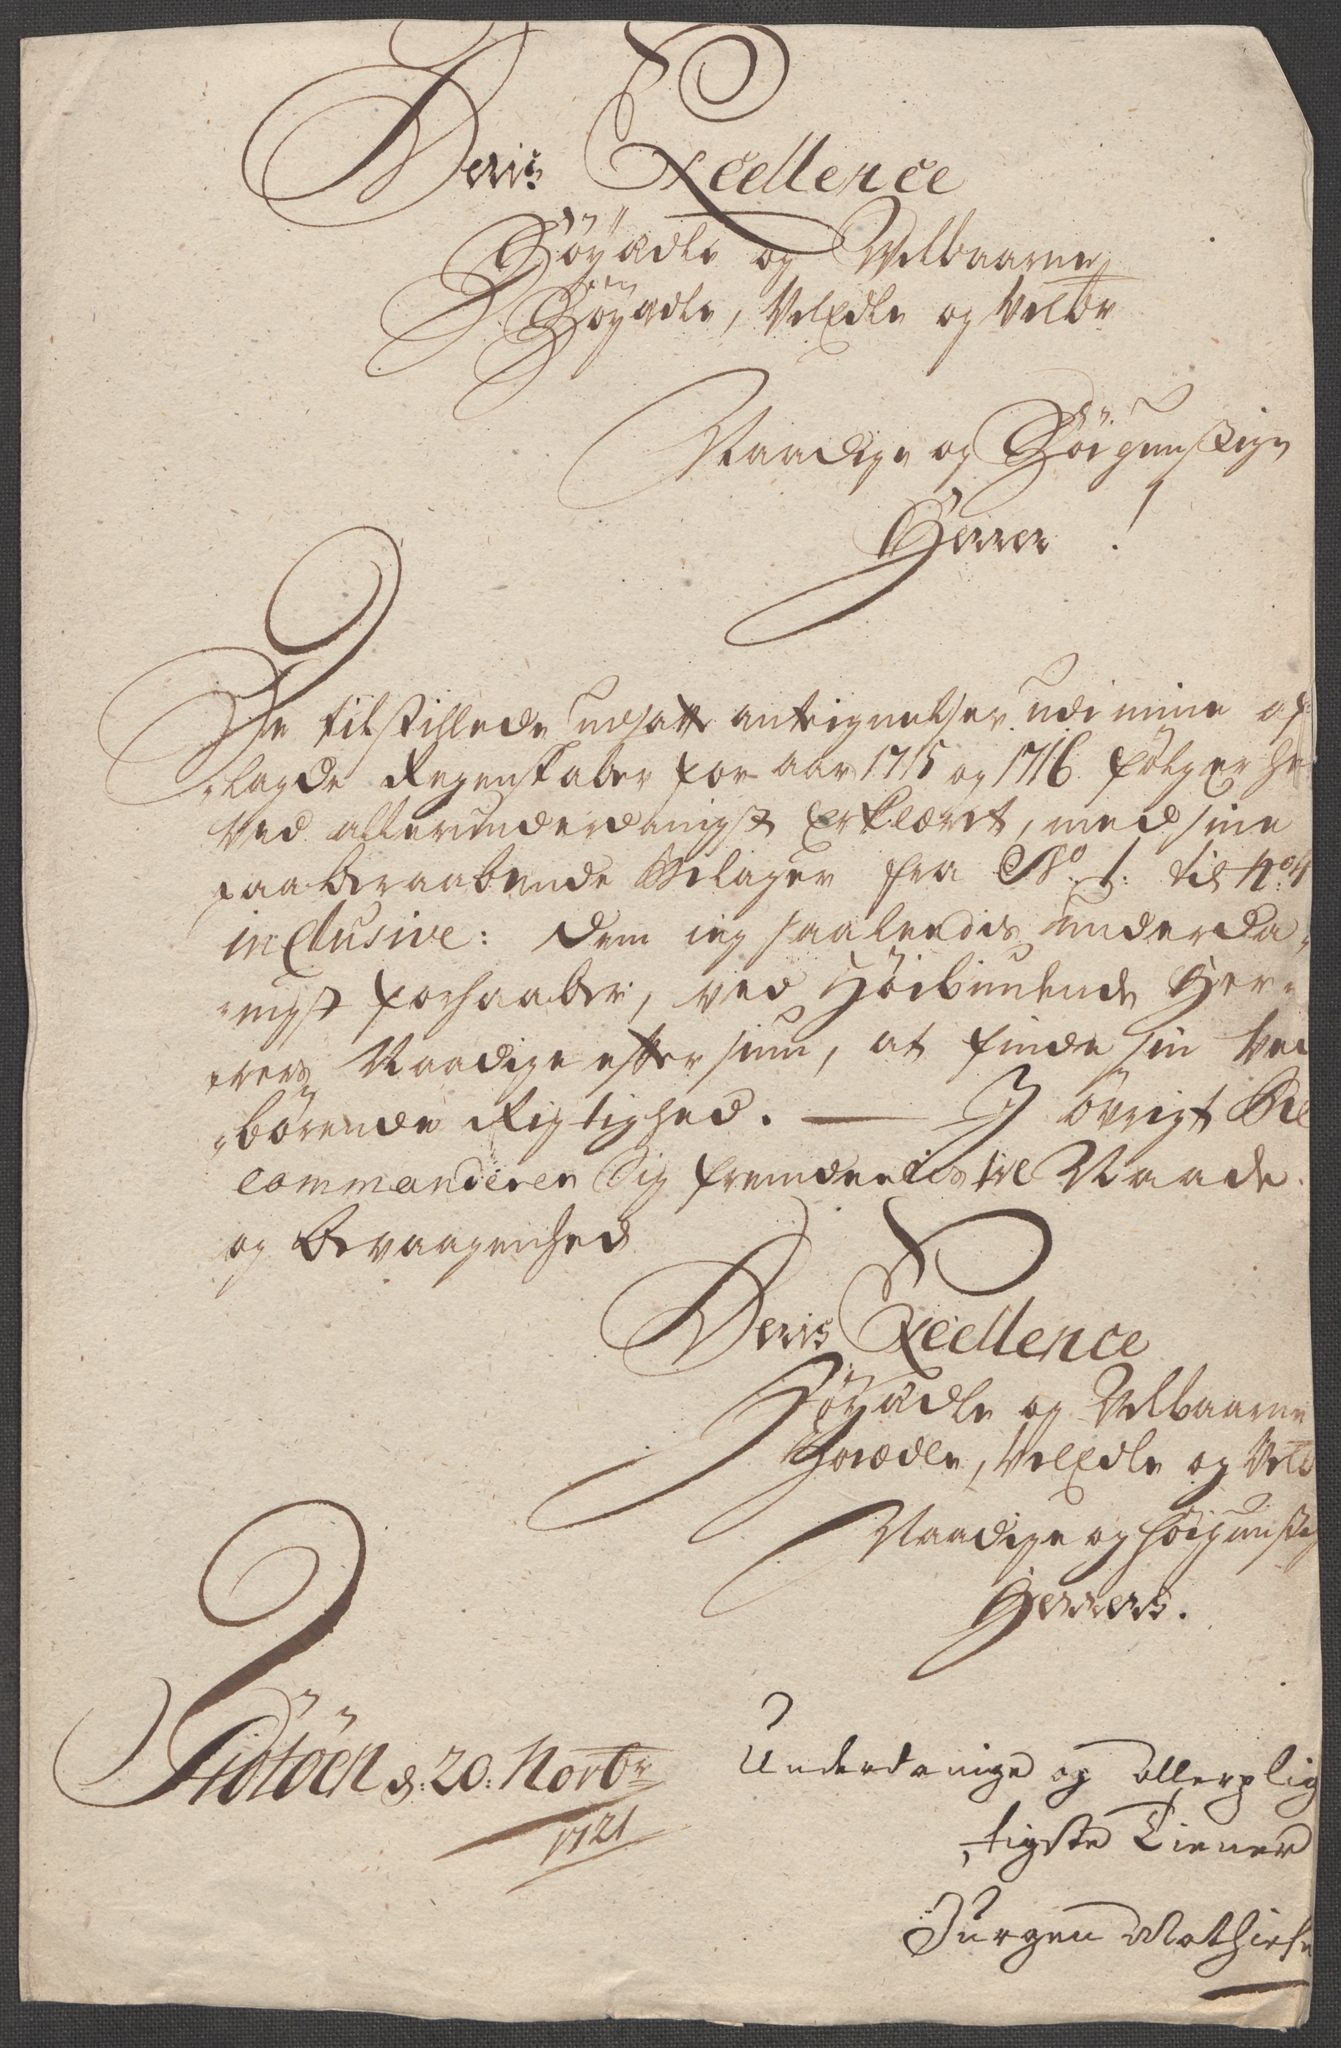 Deris Excellence
Höyædle og Velbaarne
Höyædle, VelEdle og Velbr
Naadige og Höigunstige
Herrer!
De tilstillede udsatte antegnelser udi mine af¬
„lagde Regenskaber for aar 1715 og 1716 fölger her
ved allerunderdanigst Erklæret, med sine
paaberaabende Bilager fra No 1: til No 4
inclusive: dem ieg saaledis underda„
„nigst forhaaber, ved Höibemelte Her„
„rers Naadige eftersiun, at finde sin ved
„börende Rigtighed. — I övrigt Be
commanderer Sig fremdeelis til Naade
og Bevaagenhed
Deris Excellence
Höyædle og Velbaarne
Höiædle, VelEdle og Velb
Naadige og höigunstig
Herrers.
d: 20: Novbr
1721
Underdanige og allerplig
„tigste Tiener
Jurgen Mathiese